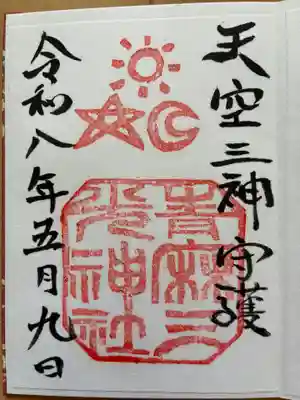 天空三神守護
青麻三
光神社
令和八年五月九日